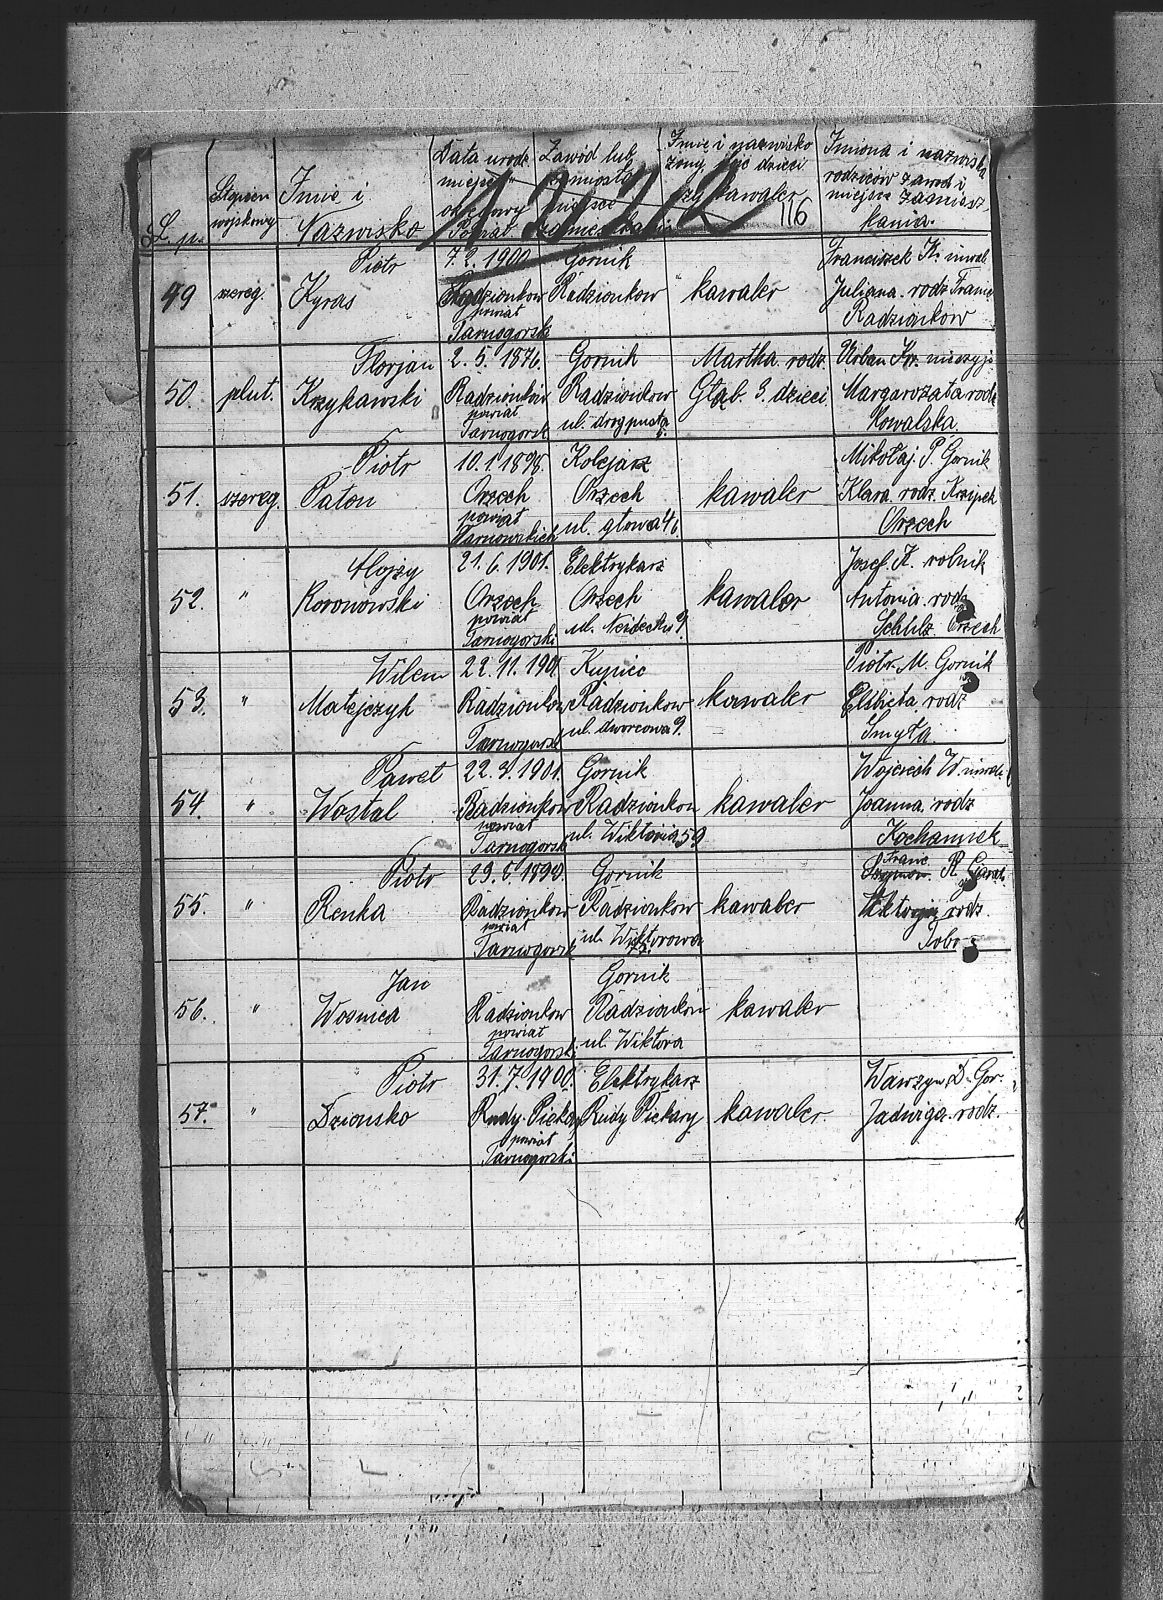 L. p.
Stopień
wojskowy
Imie i
Nazwisko
Data urodz
miejsce
powiat
Zawód lub
miejsce
Imie i nazwisko
żony ilość dzieci
czy kawaler
116
Imiona i nazwiska
rodziców zawod i
miejsce zamiesz-
kania
49
szereg.
Piotr
Kyras
7.2. 1900
Radzionkow
powiat
Tarnogorsk
Gornik
Radzionkow
kawaler
Franciszek K. inwal.
Juliana rodz
Radzionkow
50.
plut.
Florjan
Krzykawski
2. 5. 1876.
Radzionków
powiat
Tarnogorsk
Gornik
Radzionkow
ul.
Martha rodz
Głąb. 3. dzieci
Urban Kr. nieżyje
Margarozata rodz
Kowalska
51.
szereg.
Piotr
Paton
10. 1. 1898.
Orzech
powiat
Gornik
Kolejarz
Orzech
ul. głowa 46
kawaler
Mikołaj P. Gornik
Klara rodz
Orzech
52.
"
Alojzy
Koronowski
21. 6. 1901.
Orzech
powiat
Tarnogorski
Elektrykarz
Orzech
ul. 9
kawaler
Josef K. rolnik
Antonia rodz
Orzech
53.
"
Wilem
Matejczyk
22. 11. 1901
Radzionkow
Tarnogorsk
Kupiec
Radzionkow
ul. dworcowa 9.
kawaler
Piotr M. Gornik
Elsbieta rodz
Smyła
54.
"
Paweł
Wostal
22. 3. 1901.
Radzionkow
powiat
Tarnogorsk
Gornik
Radzionkow
ul. Wiktoria 59
kawaler
Wojciech W. inwal.
Joanna rodz
Kochanniek
55.
"
Piotr
Renka
29. 6. 1890.
Radzionkow
powiat
Tarnogorsk
Gornik
Radzionkow
ul. Wiktorowa
kawaler
Franc.
Szymon R.
Wiktorja rodz.
56.
"
Jan
Wosnica
Radzionkow
powiat
Tarnogorski
Gornik
Radzionkow
ul. Wiktora
kawaler
57.
"
Piotr
Dzionsko
31. 7. 1900.
Rudy-Piekary
powiat
Tarnogorski
Elektrykarz
Rudy Piekary
kawaler
Wawrzyn D. Gor.
Jadwiga rodz.